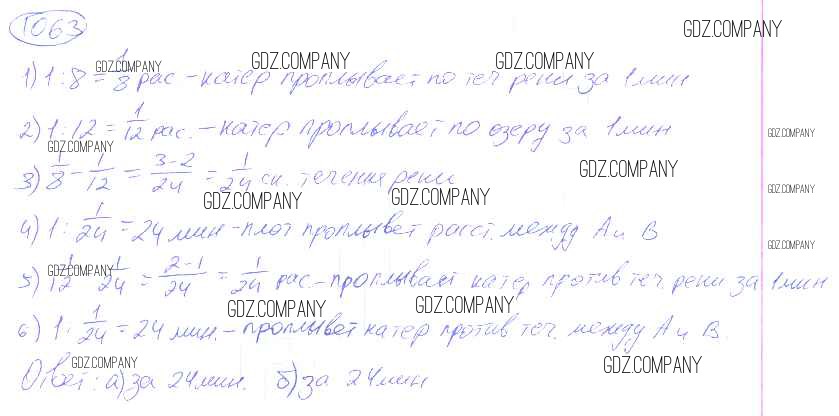 1063
GDZ.COMPANY
GDZ.COMPANY GDZ.COMPANY GDZ.COMPANY
1) 1:8 = 1/8 рас - катер проплывает по теч реки за 1 мин
2) 1:12 = 1/12 рас. - катер проплывает по озеру за 1 мин
GDZ.COMPANY
GDZ.COMPANY GDZ.COMPANY
3) 1/8 - 1/12 = (3-2)/24 = 1/24 ск. течения реки
GDZ.COMPANY GDZ.COMPANY GDZ.COMPANY
4) 1: 1/24 = 24 мин - плот проплывет расст. между А и В
GDZ.COMPANY
GDZ.COMPANY
5) 1/12 - 1/24 = (2-1)/24 = 1/24 рас. - проплывает катер против теч. реки за 1 мин
GDZ.COMPANY GDZ.COMPANY
6) 1: 1/24 = 24 мин. - проплывет катер против теч. между А и В.
GDZ.COMPANY GDZ.COMPANY
Ответ: а) за 24 мин. б) за 24 мин